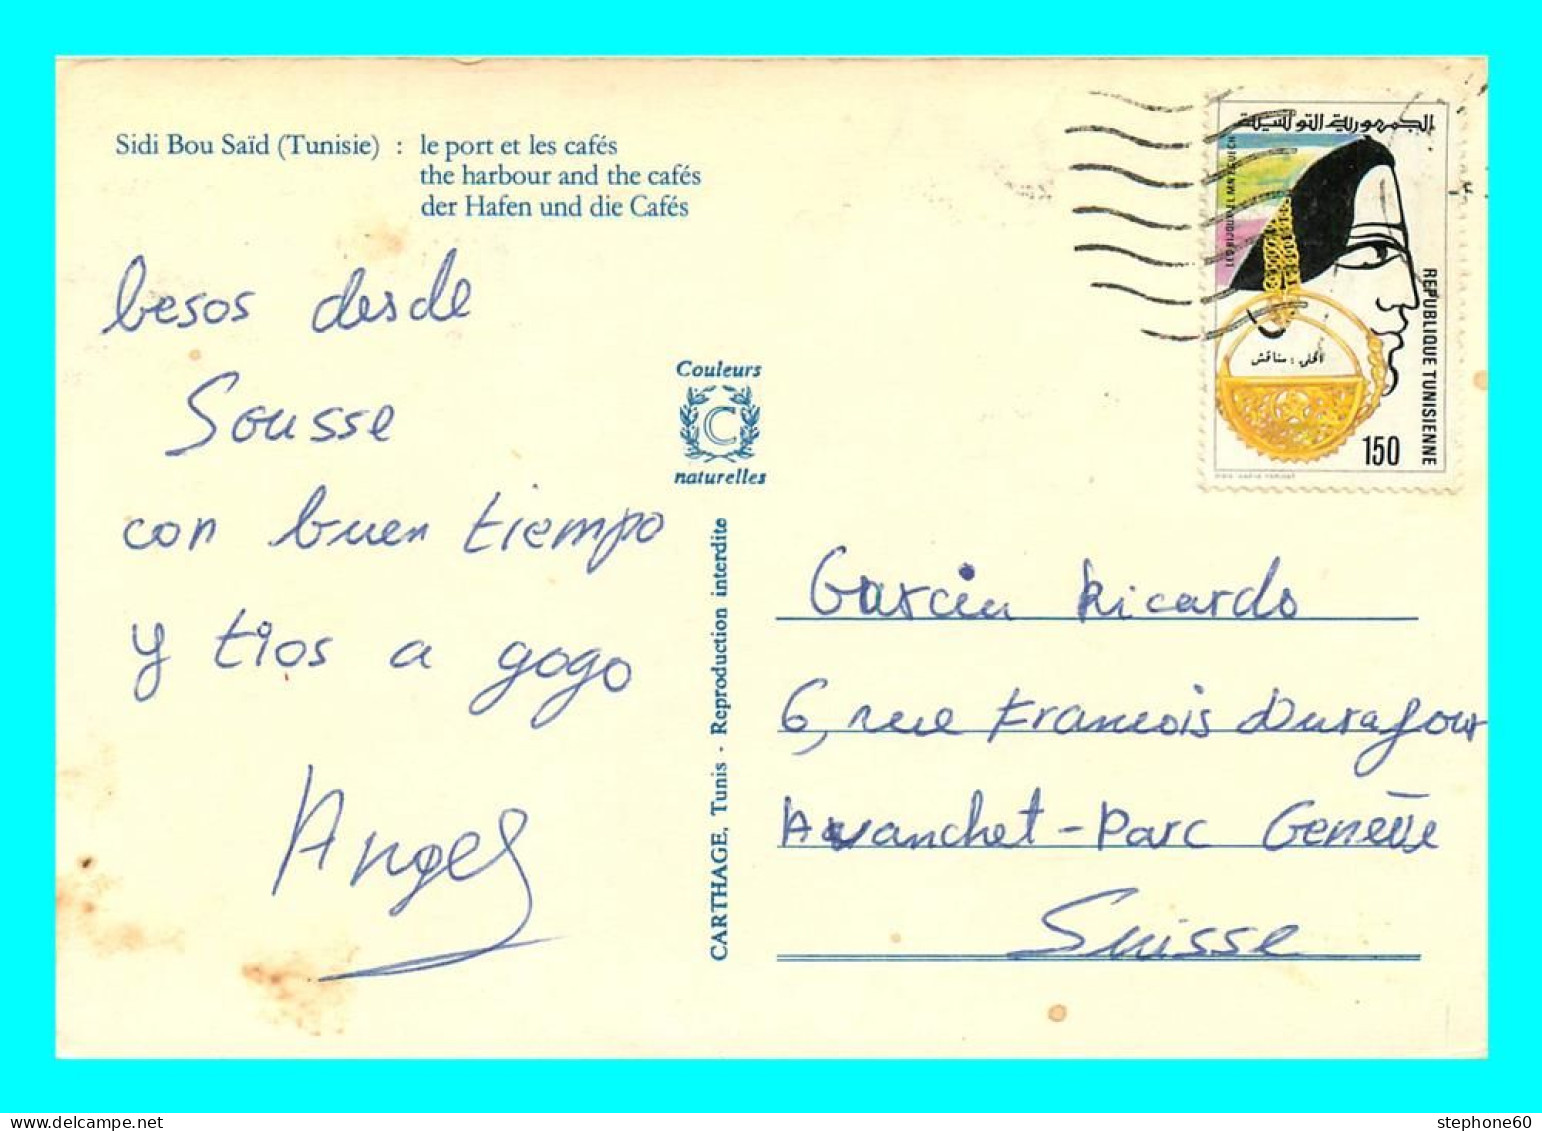 Sidi Bou Saïd (Tunisie) : le port et les cafés
the harbour and the cafés
der Hafen und die Cafés
besos desde
Sousse
con buen tiempo
y tios a gogo
Angel
Couleurs
C
naturelles
CARTHAGE, Tunis - Reproduction interdite
الجمهورية التونسية
الحلي : مناقش
REPUBLIQUE TUNISIENNE
150
Garcia Ricardo
6, rue Francois Durafour
Avanchet-Parc Genève
Suisse
stephone60